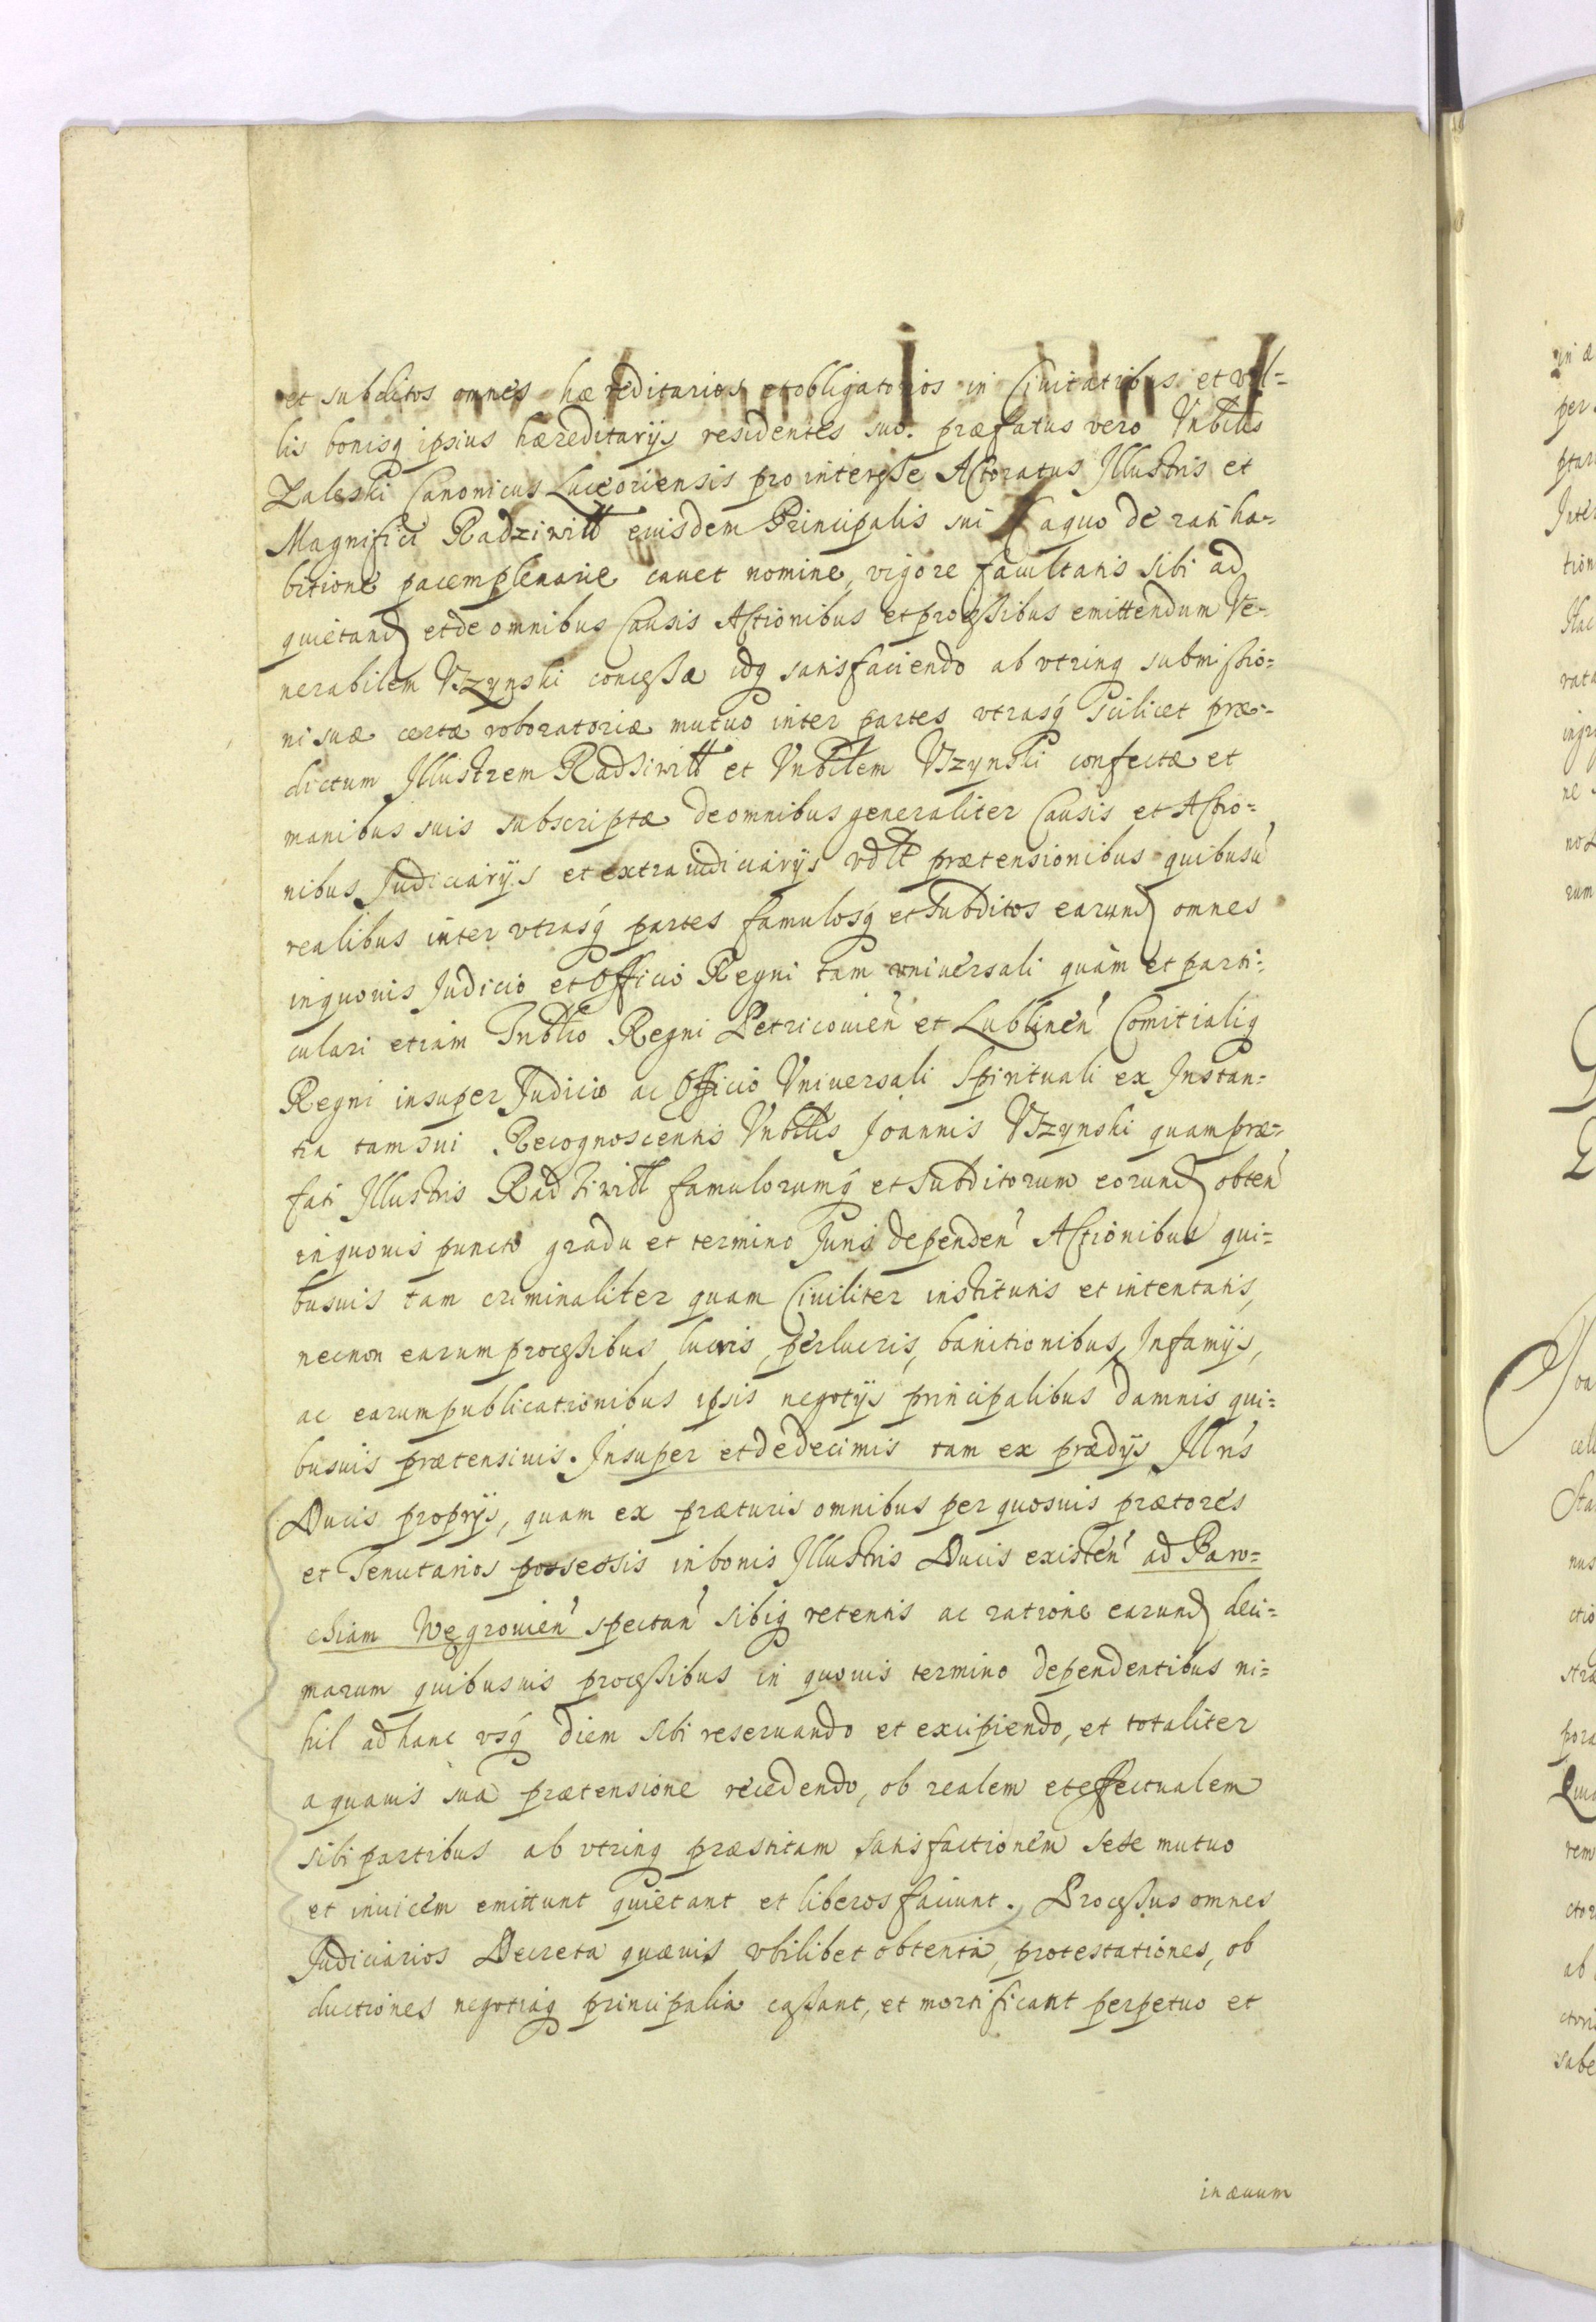 et subditos omnes hæreditarios et obligatorios in Ciuitatibus et vil=
lis bonisq ipsius hæreditarijs residentes suo. præfatus vero Vnbilis
Zaleski Canonicus Luceoriensis pro interesse Actoratus Jllustris et
Magnifici Radziwill eiusdem Principalis sui a quo de rati ha-
bitione pacem plenarie cauet nomine, vigore facultatis sibi ad
quietand et de omnibus Causis Actionibus et processibus emittendum Ve-
nerabilem Vszynski concessæ idq satisfaciendo ab vtrinq submissio=
ni suæ certæ roboratoriæ mutuo inter partes vtrasq scilicet præ-
dictum Jllustrem Radziwill et Vnbilem Vszynski confectæ et
manibus suis subscriptæ de omnibus generaliter Causis et Actio=
nibus Judiciarijs et extraiudiciarijs vdlt prætensionibus quibusu
realibus inter vtrasq partes famulosq et subditos earund omnes
in quouis Judicio et Officio Regni tam vniuersali quam et parti-
culari etiam Tribtio Regni Petricouien et Lublinen Comitialiq
Regni insuper Judicio ac Officio Vniuersali Spirituali ex Jnstan=
tia tam sui Recognoscentis Vnbilis Joannis Vszynski quam præ-
fati Jllustris Radziwill famulorumq et subditorum eorund obten
in quouis puncto gradu et termino Juris dependen Actionibus qui=
busuis tam criminaliter quam Ciuiliter institutis et intentatis,
necnon earum processibus lucris, perlucris, banitionibus, Jnfamijs,
ac earum publicationibus ipsis negotijs principalibus damnis qui=
busuis prætensiuis. Jnsuper et de decimis tam ex prædijs Jllris
Ducis proprijs, quam ex præturis omnibus per quosuis prætores
et Tenutarios possessis in bonis Jllustris Ducis existen ad Paro=
chiam Wegrouien spectan sibiq retentis ac ratione earund deci=
marum quibusuis processibus in quouis termino dependentibus ni=
hil ad hanc vsq diem sibi reseruando et excipiendo, et totaliter
a quauis sua prætensione recedendo, ob realem et effectualem
sibi partibus ab vtrinq præstitam satisfactionem sese mutuo
et inuicem emittunt quietant et liberos faciunt. Processus omnes
Judiciarios Decreta quæuis vbilibet obtenta, protestationes, ob
ductiones negotiaq principalia cassant, et mortificant perpetuo et
in æuum